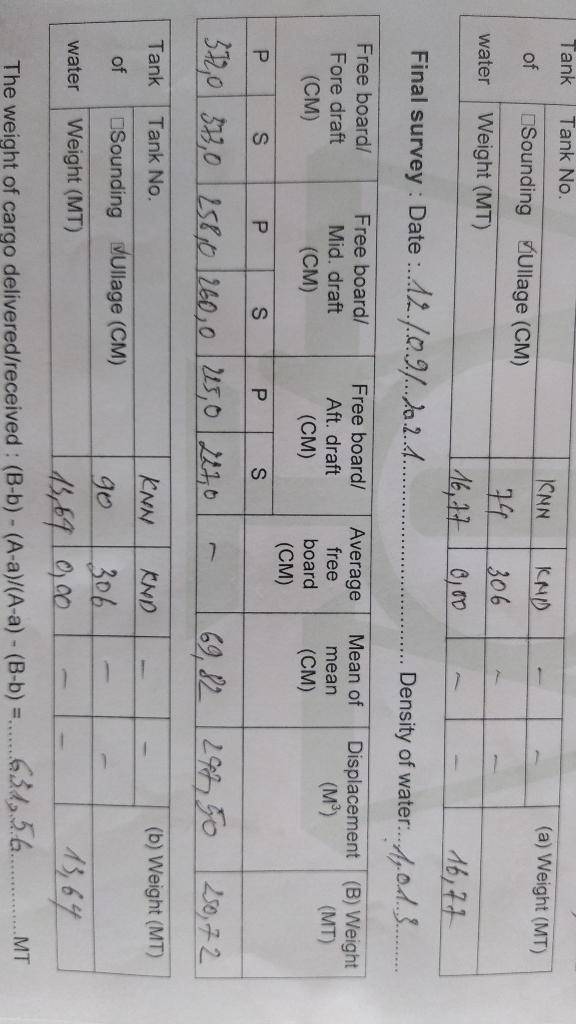 Tank Tank No. KNN KND - - (a) Weight (MT)
of □Sounding ☑Ullage (CM) 74 306 - -
water Weight (MT) 16,77 0,00 - - 16,77
Final survey : Date :...12./.09/...2021................ Density of water:...1,013..........
Free board/ Fore draft (CM) Free board/ Mid. draft (CM) Free board/ Aft. draft (CM) Average free board (CM) Mean of mean (CM) Displacement (M³) (B) Weight (MT)
P S P S P S
372,0 373,0 258,0 260,0 225,0 227,0 - 69,82 247,50 250,72
Tank Tank No. KNN KND - - (b) Weight (MT)
of □Sounding ☑Ullage (CM) 90 306 - -
water Weight (MT) 13,64 0,00 - - 13,64
The weight of cargo delivered/received : (B-b) - (A-a)/(A-a) - (B-b) =.......631,56..............MT